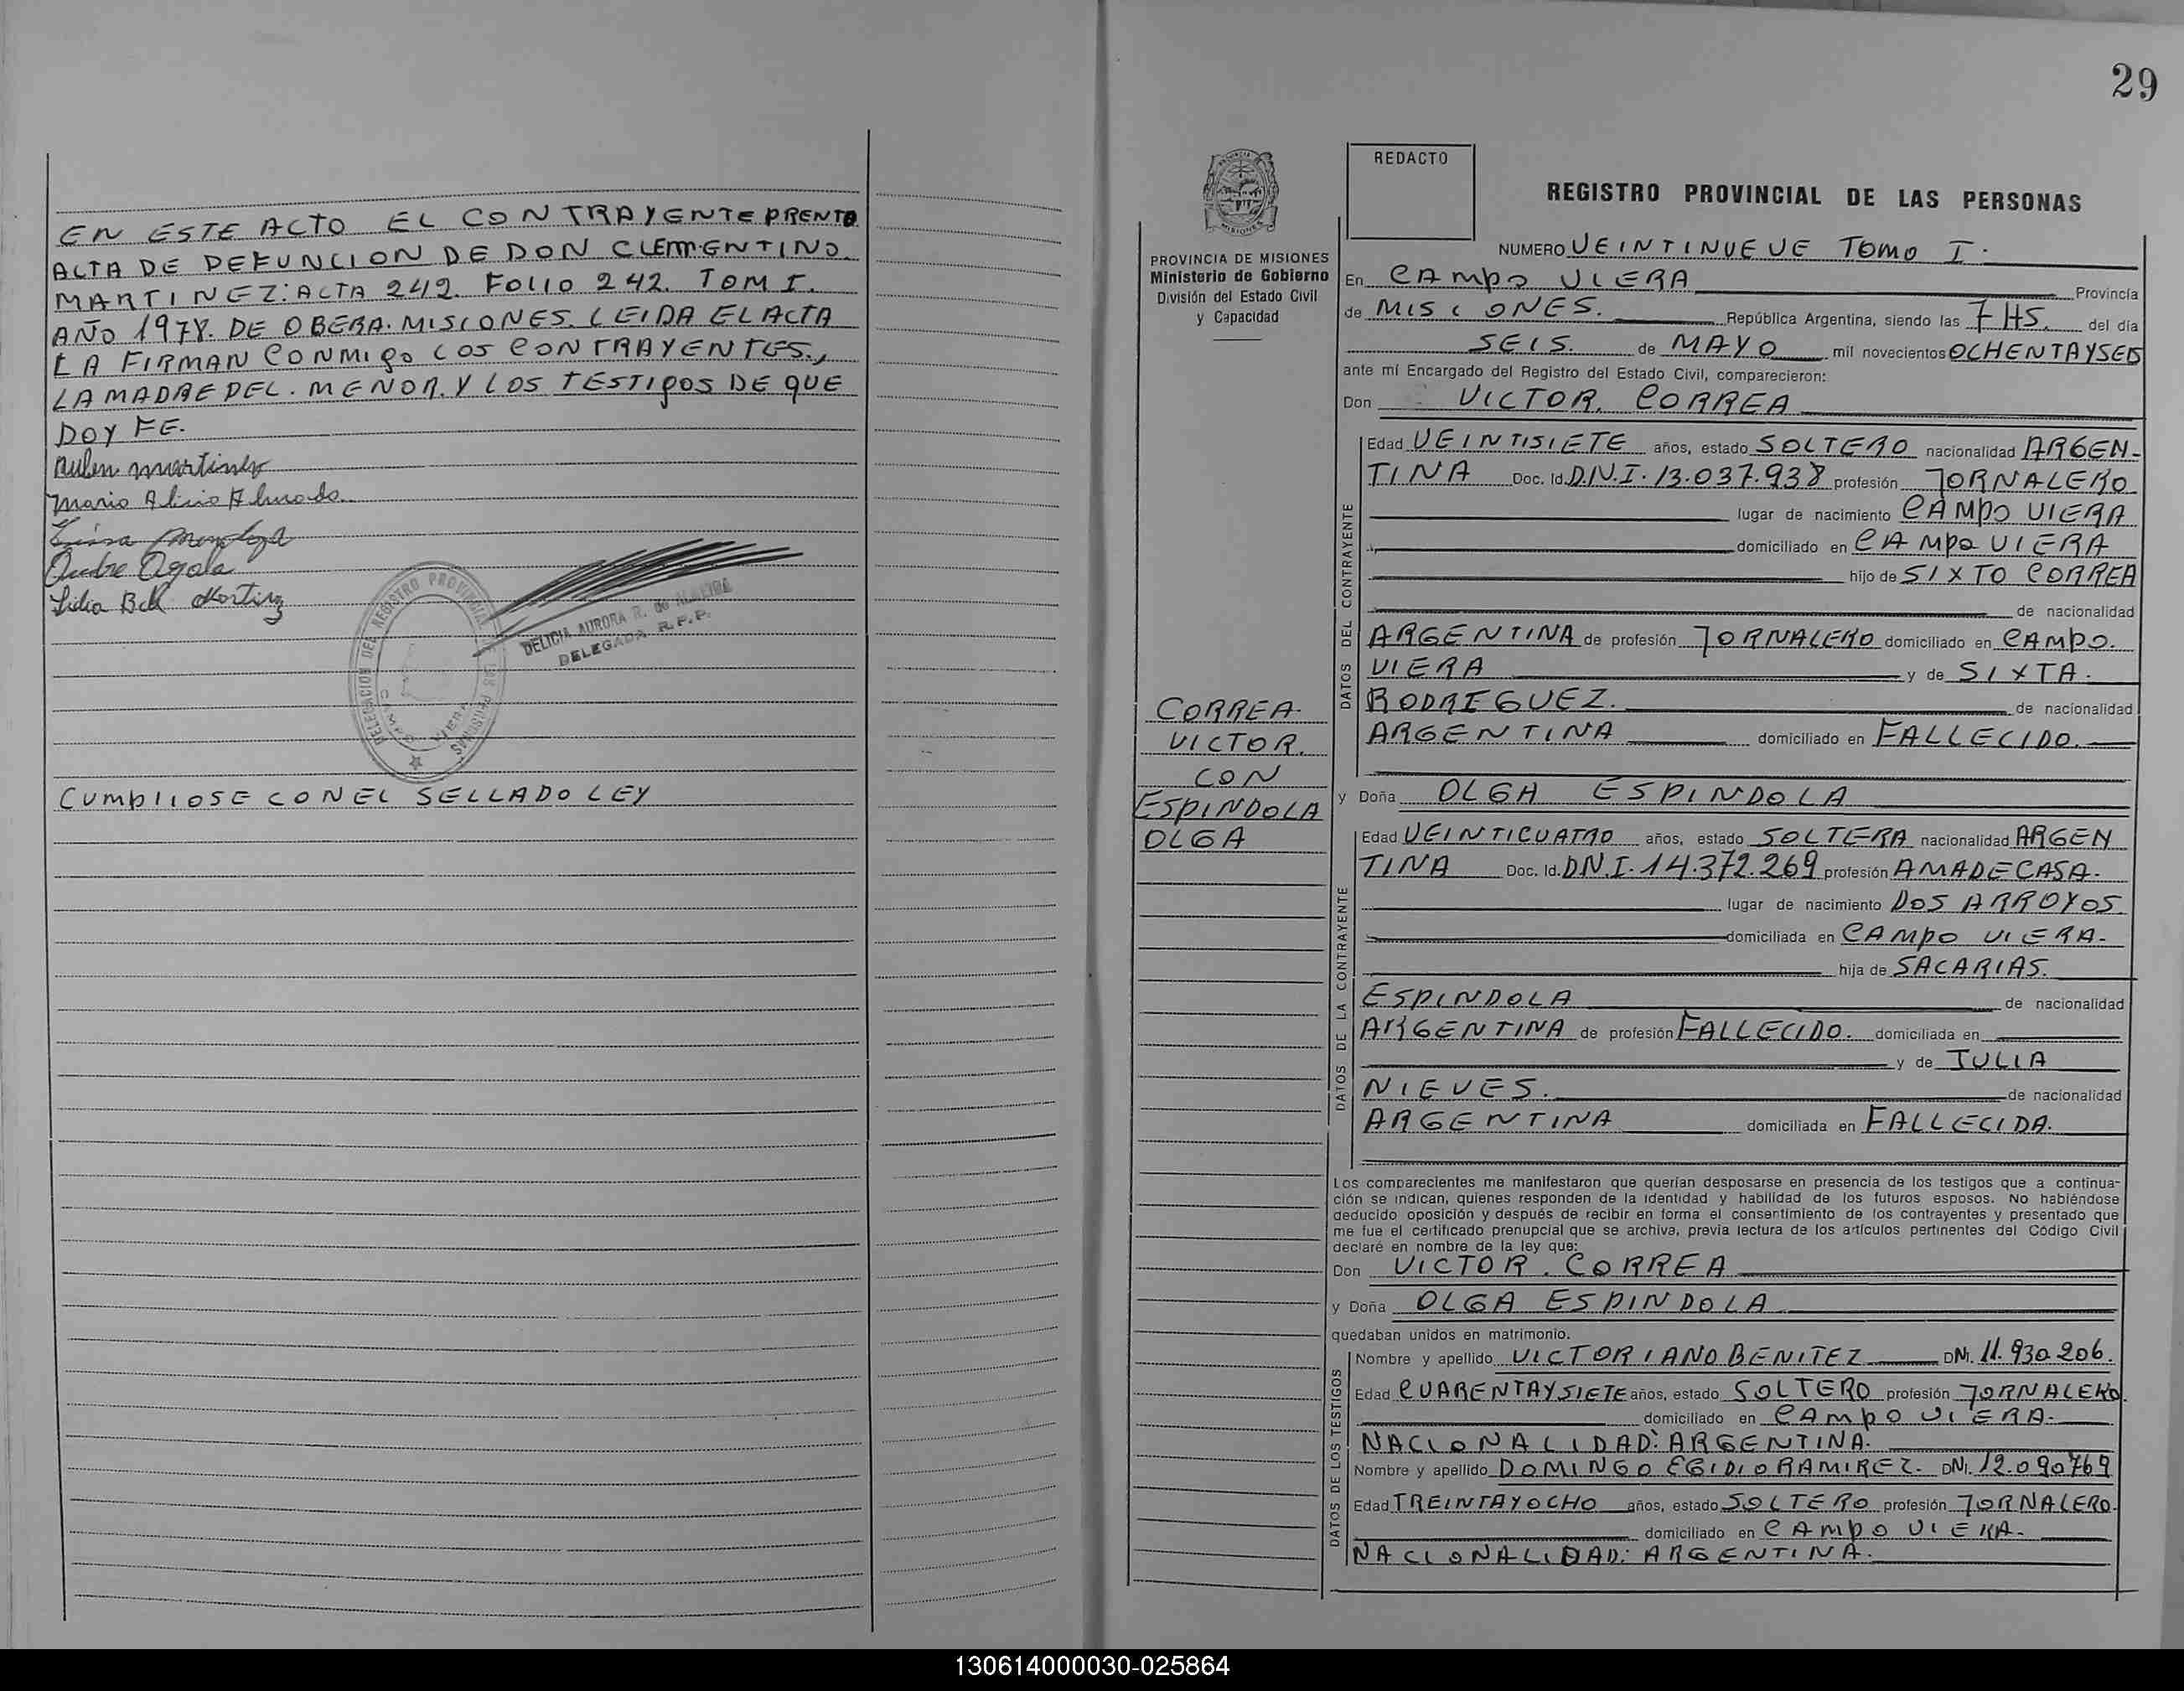 EN ESTE ACTO EL CONTRAYENTE PRENTO
ACTA DE DEFUNCION DE DON CLEMENTINO.
MARTINEZ: ACTA 242. FOLIO 242. TOM I.
AÑO 1978. DE OBERA. MISIONES. LEIDA EL ACTA
LA FIRMAN CONMIGO LOS CONTRAYENTES.,
LA MADRE DEL. MENOR. Y LOS TESTIGOS DE QUE
DOY FE.
Ruben Martinez
Lidia
CUMPLIOSE CON EL SELLADO LEY
DELEGACION DEL REGISTRO PROVINCIAL DE LAS PERSONAS
CAMPO VIERA
DELICIA AURORA R. de
DELEGADA R.P.P.
29
REDACTO
REGISTRO PROVINCIAL DE LAS PERSONAS
PROVINCIA DE MISIONES
Ministerio de Gobierno
División del Estado Civil
y Capacidad
NUMERO VEINTINUEVE TOMO I.
En CAMPO VIERA Provincia
de MISIONES. República Argentina, siendo las 7 HS. del día
SEIS. de MAYO mil novecientos OCHENTAYSEIS
ante mí Encargado del Registro del Estado Civil, comparecieron:
Don VICTOR. CORREA
CORREA.
VICTOR.
CON
ESPINDOLA
OLGA
DATOS DEL CONTRAYENTE
Edad VEINTISIETE años, estado SOLTERO nacionalidad ARGEN-
TINA Doc. Id. D.N.I. 13.037.938 profesión JORNALERO
lugar de nacimiento CAMPO VIERA
domiciliado en CAMPO VIERA
hijo de SIXTO CORREA
de nacionalidad
ARGENTINA de profesión JORNALERO domiciliado en CAMPO.
VIERA y de SIXTA.
RODRIGUEZ. de nacionalidad
ARGENTINA domiciliado en FALLECIDO.
y Doña OLGA ESPINDOLA
DATOS DE LA CONTRAYENTE
Edad VEINTICUATRO años, estado SOLTERA nacionalidad ARGEN
TINA Doc. Id. DN.I. 14.372.269 profesión AMADECASA.
lugar de nacimiento DOS ARROYOS.
domiciliada en CAMPO VIERA.
hija de SACARIAS.
ESPINDOLA de nacionalidad
ARGENTINA de profesión FALLECIDO. domiciliada en
y de JULIA
NIEVES. de nacionalidad
ARGENTINA domiciliada en FALLECIDA.
Los comparecientes me manifestaron que querían desposarse en presencia de los testigos que a continua-
ción se indican, quienes responden de la identidad y habilidad de los futuros esposos. No habiéndose
deducido oposición y después de recibir en forma el consentimiento de los contrayentes y presentado que
me fue el certificado prenupcial que se archiva, previa lectura de los artículos pertinentes del Código Civil
declaré en nombre de la ley que:
Don VICTOR. CORREA
y Doña OLGA ESPINDOLA
quedaban unidos en matrimonio.
DATOS DE LOS TESTIGOS
Nombre y apellido VICTORIANO BENITEZ DNI. 11.930.206.
Edad CUARENTAYSIETE años, estado SOLTERO profesión JORNALERO.
domiciliado en CAMPO VIERA.
NACIONALIDAD: ARGENTINA.
Nombre y apellido DOMINGO EGIDIO RAMIREZ. DNI. 12.090769
Edad TREINTAYOCHO años, estado SOLTERO profesión JORNALERO.
domiciliado en CAMPO VIERA.
NACIONALIDAD: ARGENTINA.
130614000030-025864